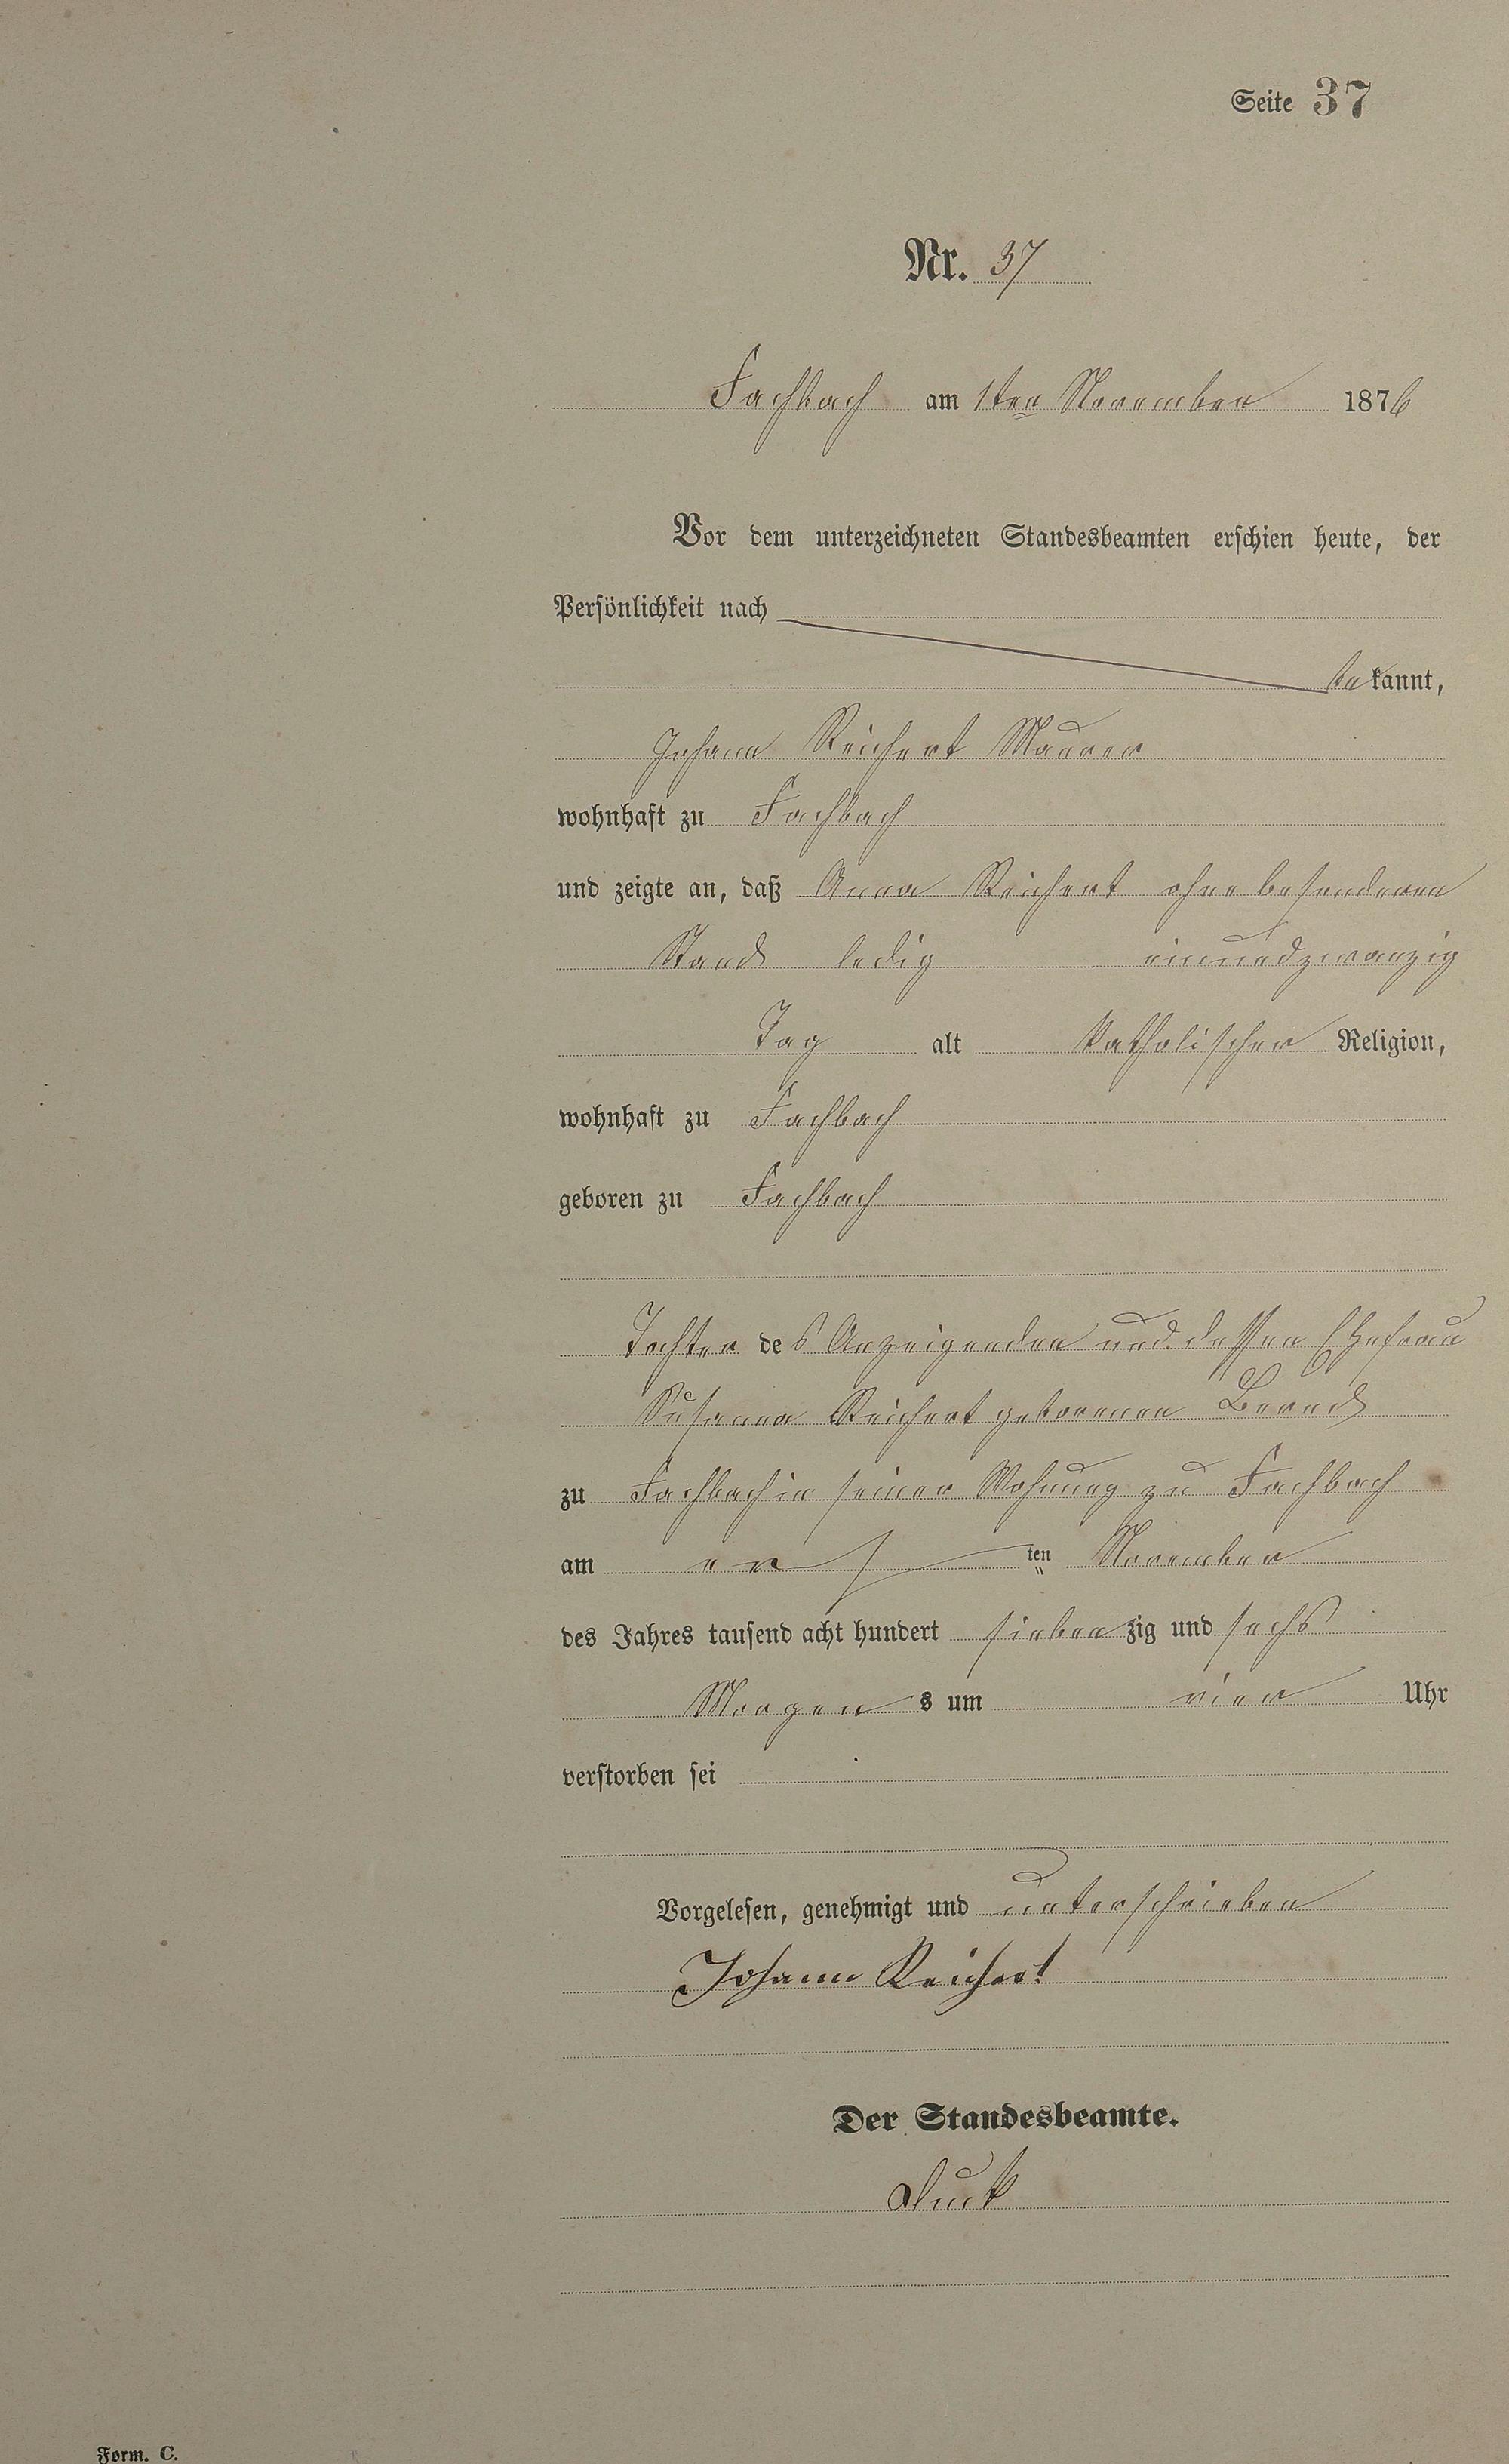 Seite 37
Nr. 37
Fachbach am 1ten November 1876
Vor dem unterzeichneten Standesbeamten erschien heute, der
Persönlichkeit nach
bekannt,
Johann Reichert Maurer
wohnhaft zu Fachbach
und zeigte an, daß Anna Reichert ohne besonderen
Stand ledig einundzwanzig
Tag alt katholischer Religion,
wohnhaft zu Fachbach
geboren zu Fachbach
Tochter des Anzeigenden und dessen Ehefrau
Susanna Reichert geborenen
zu Fachbach in seiner Wohnung zu Fachbach
am ersten November
des Jahres tausend acht hundert siebenzig und sechs
Morgens um vier Uhr
verstorben sei
Vorgelesen, genehmigt und unterschrieben
Johann Reichert
Der Standesbeamte.
Form. C.